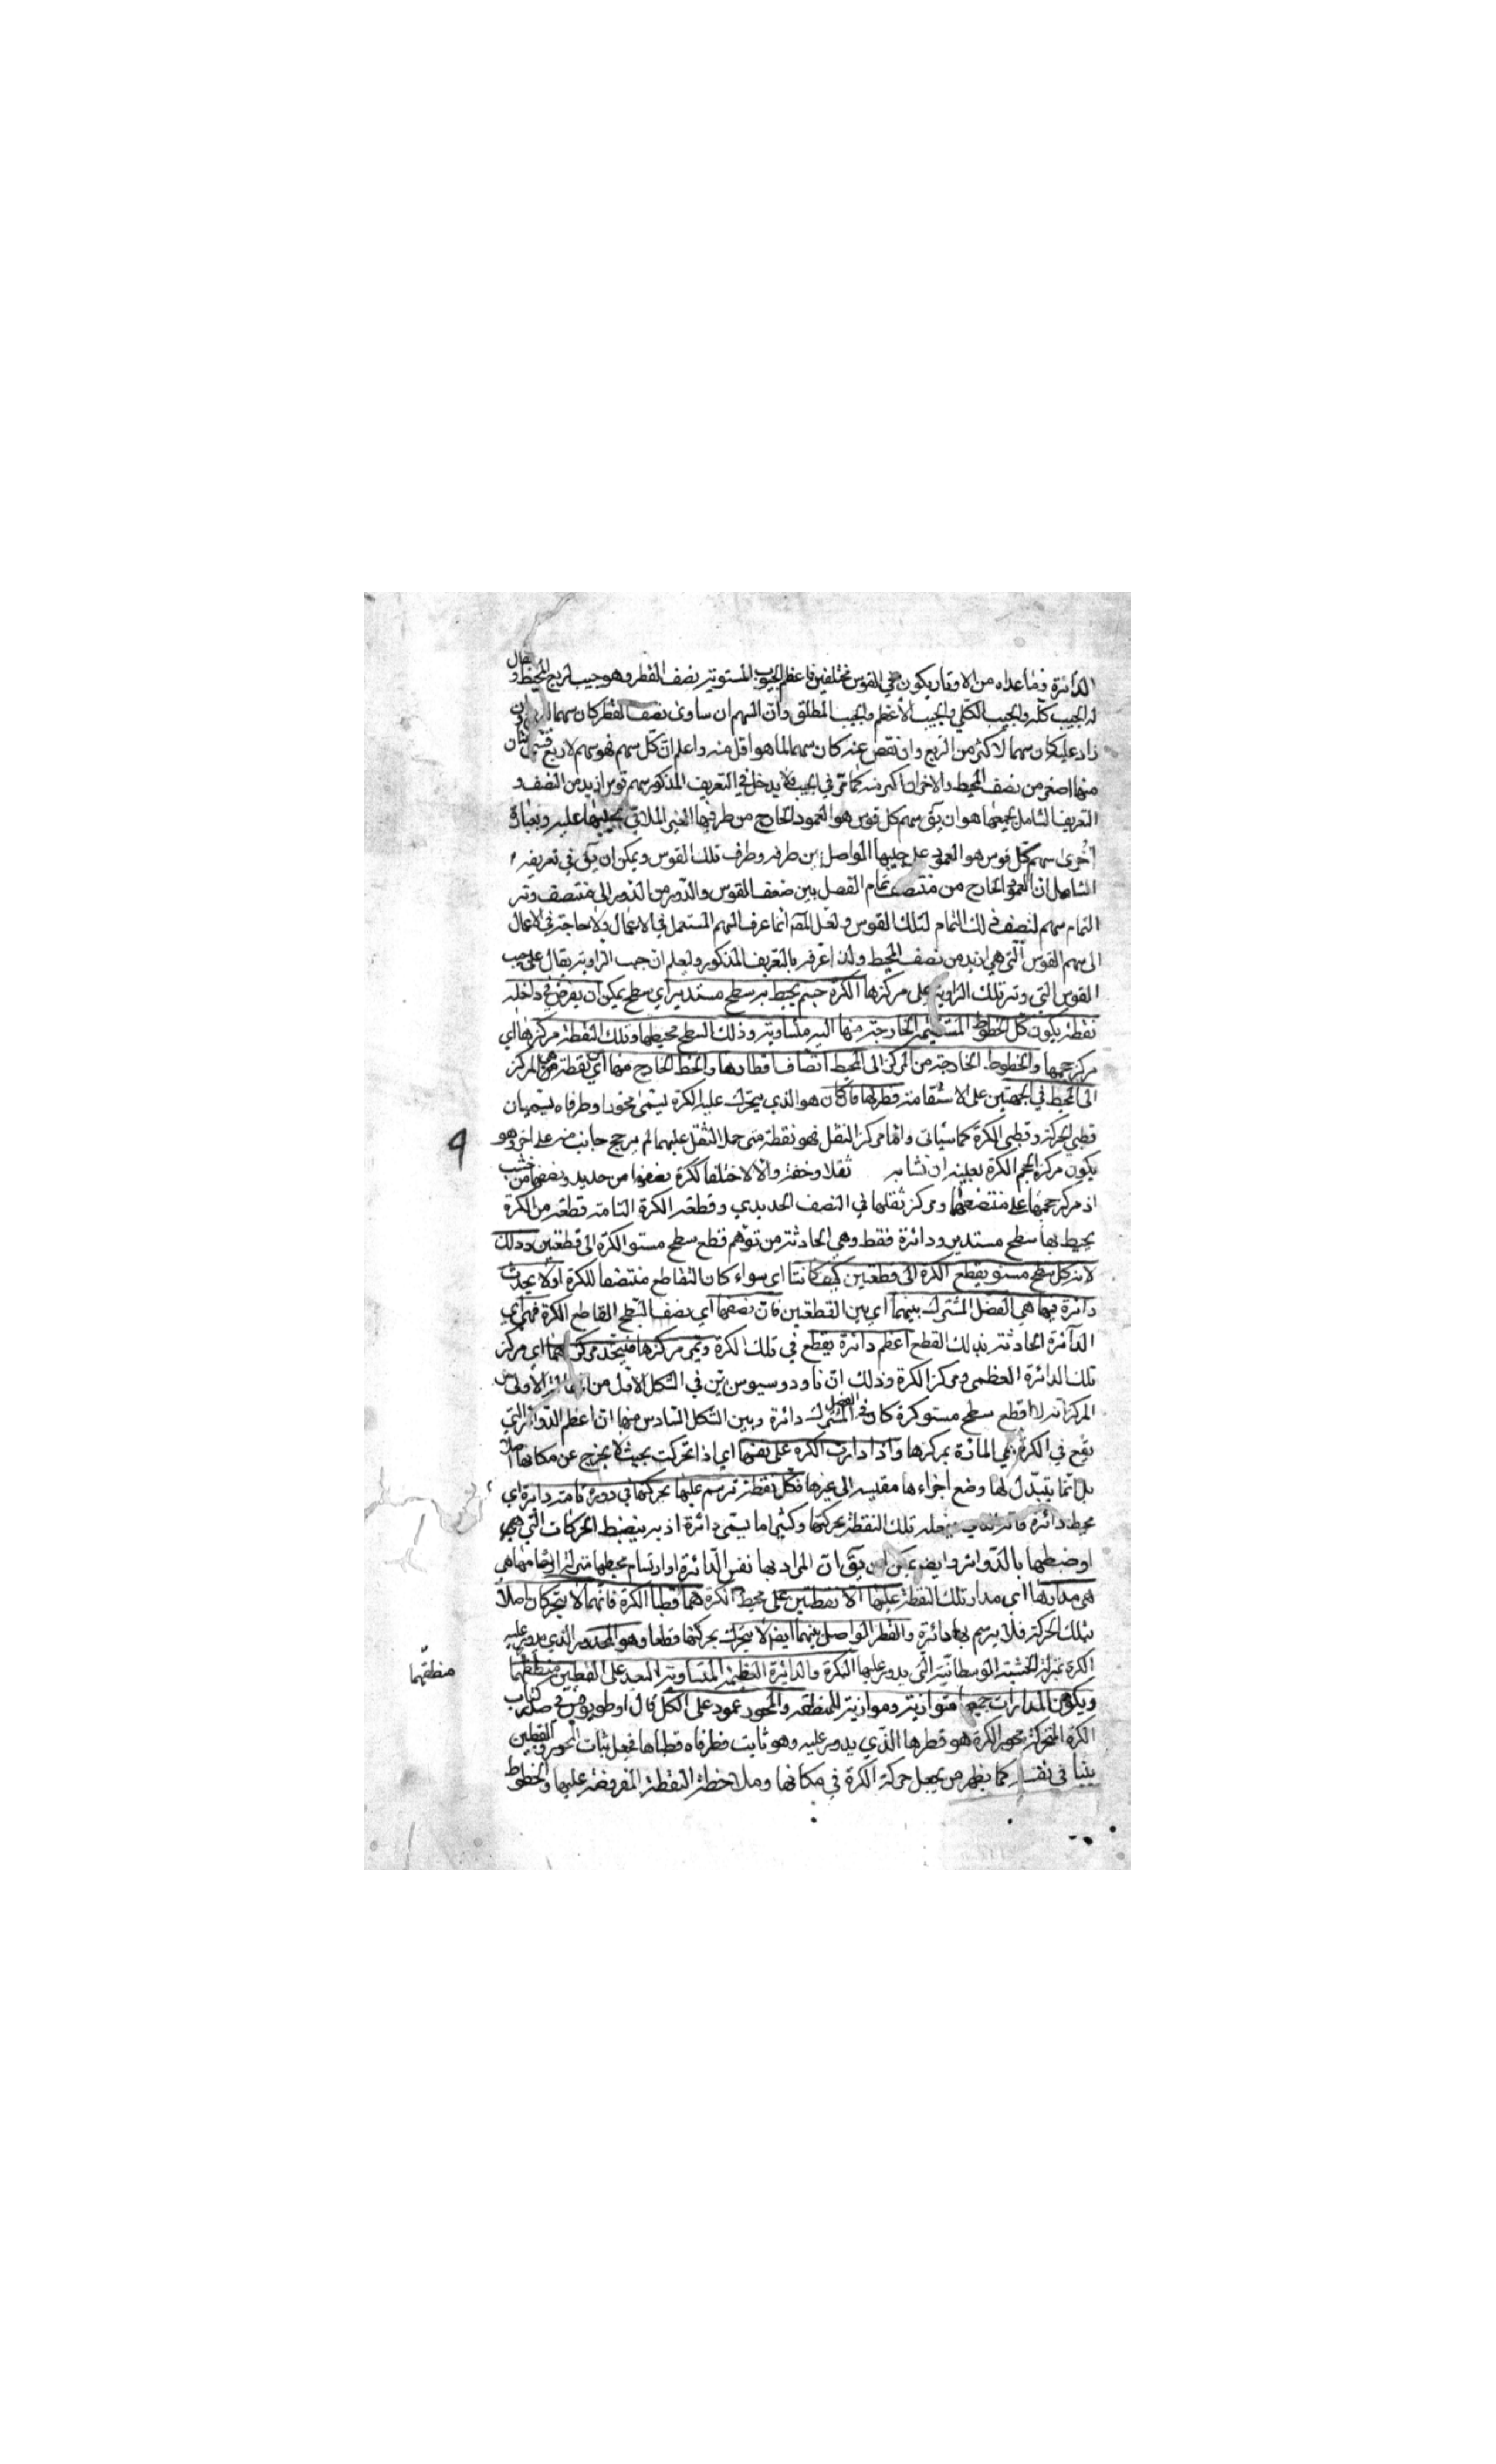 الدائرة وما عداه من الاوتار يكون في القوس مختلفين فاعظم الجيوب المستوية نصف القطر وهو جيب لربع المحيط و يقال
له الجيب كله والجيب الكلي والجيب الأعظم والجيب المطلق وان السهم ان ساوى نصف القطر كان سهما وان
زاد عليه كان سهما لاكثر من الربع وان نقص عنه كان سهما لما هو اقل منه واعلم ان كل سهم فهو سهم لاربع قسي ثنتان
منها اصغر من نصف المحيط والاخران اكبر منه كما مر في الجيب فلا يدخل في التعريف المذكور سهم قوس ازيد من النصف و
التعريف الشامل لجميعها هو ان يق سهم كل قوس هو العمود الخارج من طرفها الغير الملاقي لجيبها عليه وبعبارة
أخرى سهم كل قوس هو العمود على جيبها الواصل بين طرفه وطرف تلك القوس ويمكن ان يق في تعريفه
الشامل ان العمود الخارج من منتصف تمام الفصل بين ضعف القوس والدور من الدور الى منتصف وتر
التمام سهم لنصف ذلك التمام لتلك القوس ولعل المصّ انما عرف السهم المستعمل في الاعمال ولا حاجة في الاعمال
الى سهم القوس التي هي ازيد من نصف المحيط ولذا عرفه بالتعريف المذكور وليعلم ان جيب الزاوية يقال على جيب
القوس التي وتر تلك الزاوية على مركزها الكرة جسم يحيط به سطح مستدير اي سطح يمكن ان يفرض في داخله
نقطة يكون كل الخطوط المستقيمة الخارجة منها اليه متساوية وذلك السطح محيطها وتلك النقطة مركزها اي
مركز حجمها والخطوط الخارجة من المركز الى المحيط انصاف اقطارها والخط الخارج منها اي من نقطة هي المركز
الى المحيط في الجهتين على الاستقامة قطرها فان كان هو الذي يتحرك عليه الكرة يسمى محورا وطرفاه يسميان
قطبي الحركة وقطبي الكرة كما سيأتي واما مركز الثقل فهو نقطة متى حمل الثقل عليها لم يرجح جانب منه على اخر وهو
يكون مركز الحجم الكرة بعينه ان تشابه ثقلا وخفة والا لاختلفا ككرة بعضها من حديد وبعضها من خشب
اذ مركز حجمها على منتصفها ومركز ثقلها في النصف الحديدي وقطعة الكرة التامة قطعة من الكرة
يحيط بها سطح مستدير ودائرة فقط وهي الحادثة من توهم قطع سطح مستو الكرة الى قطعتين وذلك
لانه كل سطح مستو يقطع الكرة الى قطعتين كيف كانتا اي سواء كان التقاطع منتصفا للكرة اولا يحدث
دائرة فيها هي الفصل المشترك بينهما اي بين القطعتين فان نصفها اي نصف السطح القاطع الكرة فهي اي
الدآئرة الحادثة بذلك القطع اعظم دائرة يقطع في تلك الكرة ويمر مركزها فيتحد مركزاهما اي مركز
تلك الدائرة العظمى ومركز الكرة وذلك ان ثاودوسيوس بين في الشكل الاول من المقالة الأولى من
المركز انه لا اقطع سطح مستو كرة كان الفصل المشترك دائرة وبين الشكل السادس منها ان اعظم الدوائر التي
تقع في الكرة هي المارة بمركزها واذا دارت الكرة على نفسها اي اذا تحركت بحيث لا يخرج عن مكانها اصلا
بل انما يتبدل لها وضع اجزاءها مقيسه الى غيرها فكل نقطة ترسم عليها بحركتها في دورة تامة دائرة اي
محيط دائرة تلك النقطة بحركتها وكثيرا ما يسمى دائرة اذ به ينضبط الحركات التي هي
اوضبطها بالدوائر وايضا يمكن ان يق ان المراد بها نفس الدائرة او ارتسام محيطها
هي مدارها اي مدار تلك النقطة عليها الا نقطتين على محيط الكرة هما قطبا الكرة فانهما لا يتحركان اصلا
بتلك الحركة فلا يرسم بها دائرة والقطر الواصل بينهما ايضا لا يتحرك بحركتها قطعا وهو المحور الذي يدور عليه
الكرة بمنزلة الخشبة الوسطانية التي يدور عليها البكرة والدائرة العظيمة المتساوية البعد على القطبين منطقتها
ويكون المدارات جميعها متوازية وموازية للمنطقة والمحور عمود على الكل قال اوطولوقس في صدر كتاب
الكرة المتحركة محور الكرة هو قطرها الذي يدور عليه وهو ثابت فطرفاه قطباها فجعل ثبات المحور والقطبين
بينا في نفسه كما يظهر من تخيل حركة الكرة في مكانها وملاحظة النقطة المفروضة عليها والخطوط
٩
منطقتها